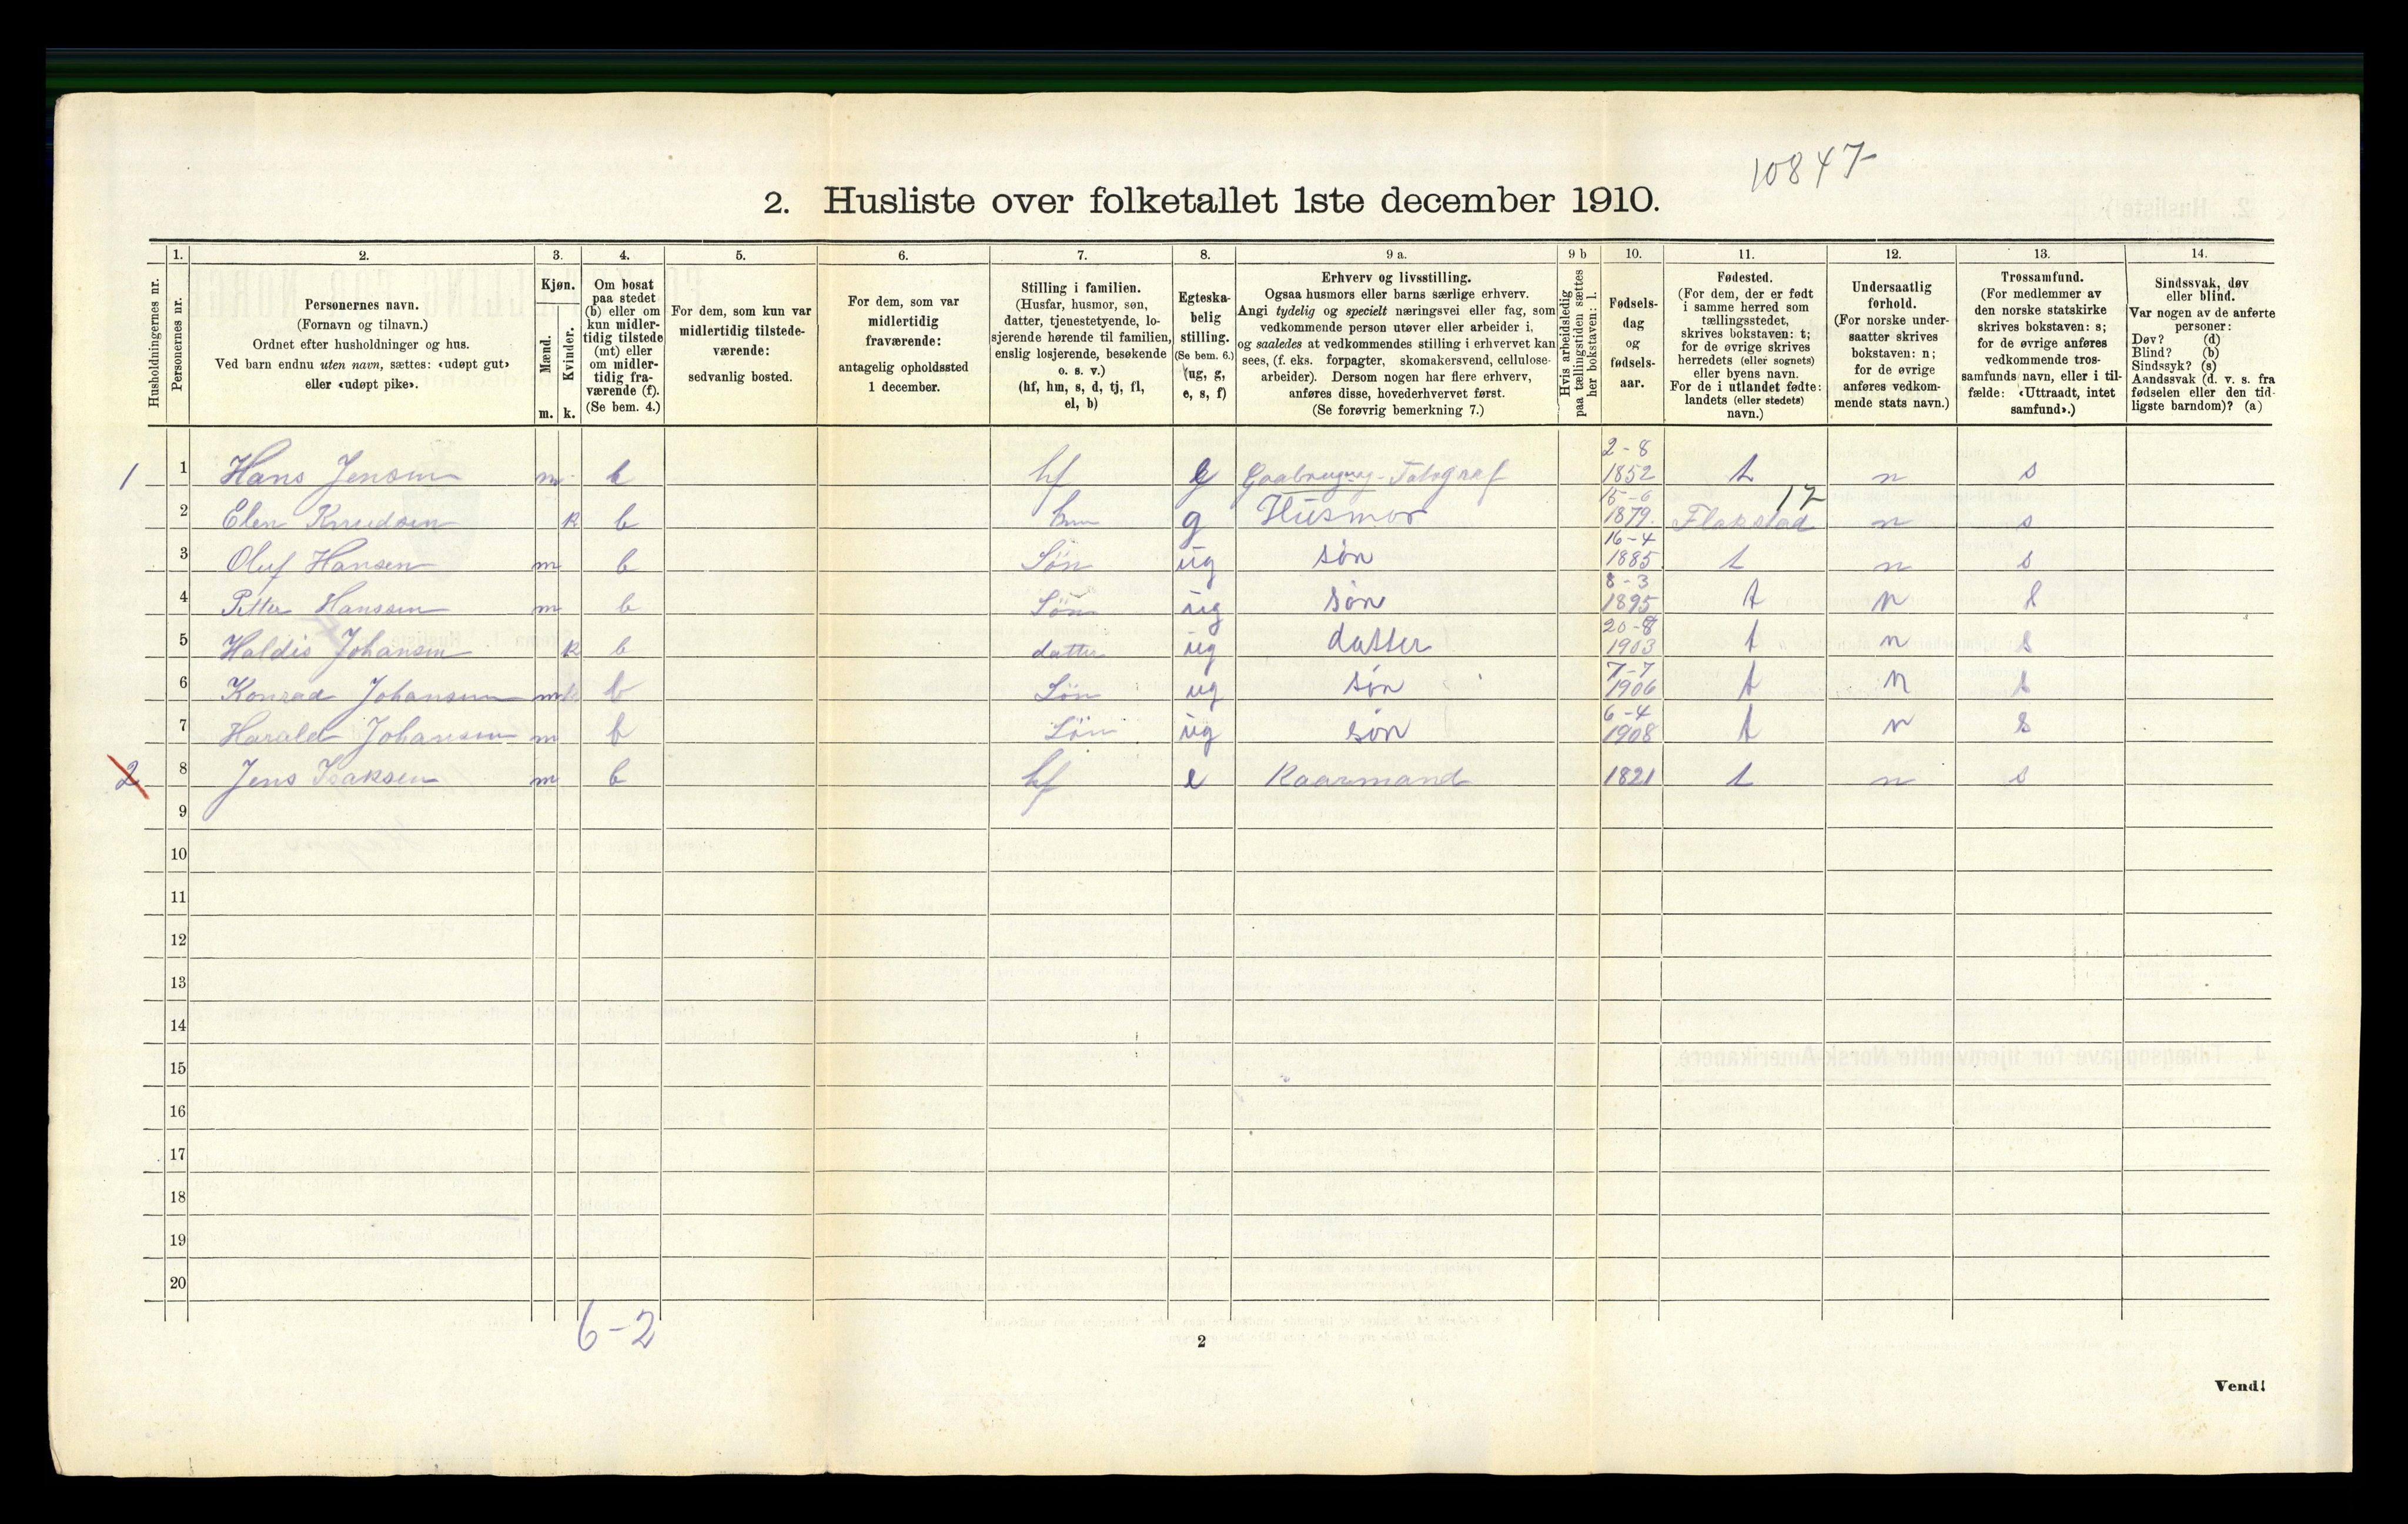 10847
2. Husliste over folketallet 1ste december 1910.
Husholdningernes nr.
1. Personernes nr.
2. Personernes navn. (Fornavn og tilnavn.) Ordnet efter husholdninger og hus. Ved barn endnu uten navn, sættes: «udøpt gut» eller «udøpt pike».
3. Kjøn. Mænd. m. Kvinder. k.
4. Om bosat paa stedet (b) eller om kun midlertidig tilstede (mt) eller om midlertidig fraværende (f). (Se bem. 4.)
5. For dem, som kun var midlertidig tilstedeværende: sedvanlig bosted.
6. For dem, som var midlertidig fraværende: antagelig opholdssted 1 december.
7. Stilling i familien. (Husfar, husmor, søn, datter, tjenestetyende, losjerende hørende til familien, enslig losjerende, besøkende o. s. v.) (hf, hm, s, d, tj, fl, el, b)
8. Egteskabelig stilling. (Se bem. 6.) (ug, g, e, s, f)
9 a. Erhverv og livsstilling. Ogsaa husmors eller barns særlige erhverv. Angi tydelig og specielt næringsvei eller fag, som vedkommende person utøver eller arbeider i, og saaledes at vedkommendes stilling i erhvervet kan sees, (f. eks. forpagter, skomakersvend, cellulosearbeider). Dersom nogen har flere erhverv, anføres disse, hovederhvervet først. (Se forøvrig bemerkning 7.)
9 b Hvis arbeidsledig paa tællingstiden sættes her bokstaven: l.
10. Fødselsdag og fødselsaar.
11. Fødested. (For dem, der er født i samme herred som tællingsstedet, skrives bokstaven: t; for de øvrige skrives herredets (eller sognets) eller byens navn. For de i utlandet fødte: landets (eller stedets) navn.)
12. Undersaatlig forhold. (For norske undersaatter skrives bokstaven: n; for de øvrige anføres vedkommende stats navn.)
13. Trossamfund. (For medlemmer av den norske statskirke skrives bokstaven: s; for de øvrige anføres vedkommende trossamfunds navn, eller i tilfælde: «Uttraadt, intet samfund».)
14. Sindssvak, døv eller blind. Var nogen av de anførte personer: Døv? (d) Blind? (b) Sindssyk? (s) Aandssvak (d. v. s. fra fødselen eller den tidligste barndom)? (a)
1 1 Hans Jensen m b hf g Fotograf 2-8 1852 t n s
2 Elen Knudsen k b hm g Husmor 15-6 1879 Flakstad 17 n s
3 Oluf Hansen m b Søn ug søn 16-4 1885 t n s
4 Petter Hanssen m b Søn ug søn 8-3 1895 t n s
5 Haldis Johansen k b datter ug datter 20-8 1903 t n s
6 Konrad Johansen m b Søn ug søn 7-7 1906 t n s
7 Harald Johansen m b Søn ug søn 6-4 1908 t n s
2 8 Jens Isaksen m b hf e Kaarmand 1821 t n s
9
10
11
12
13
14
15
16
17
18
19
20
6-2
2
Vend!